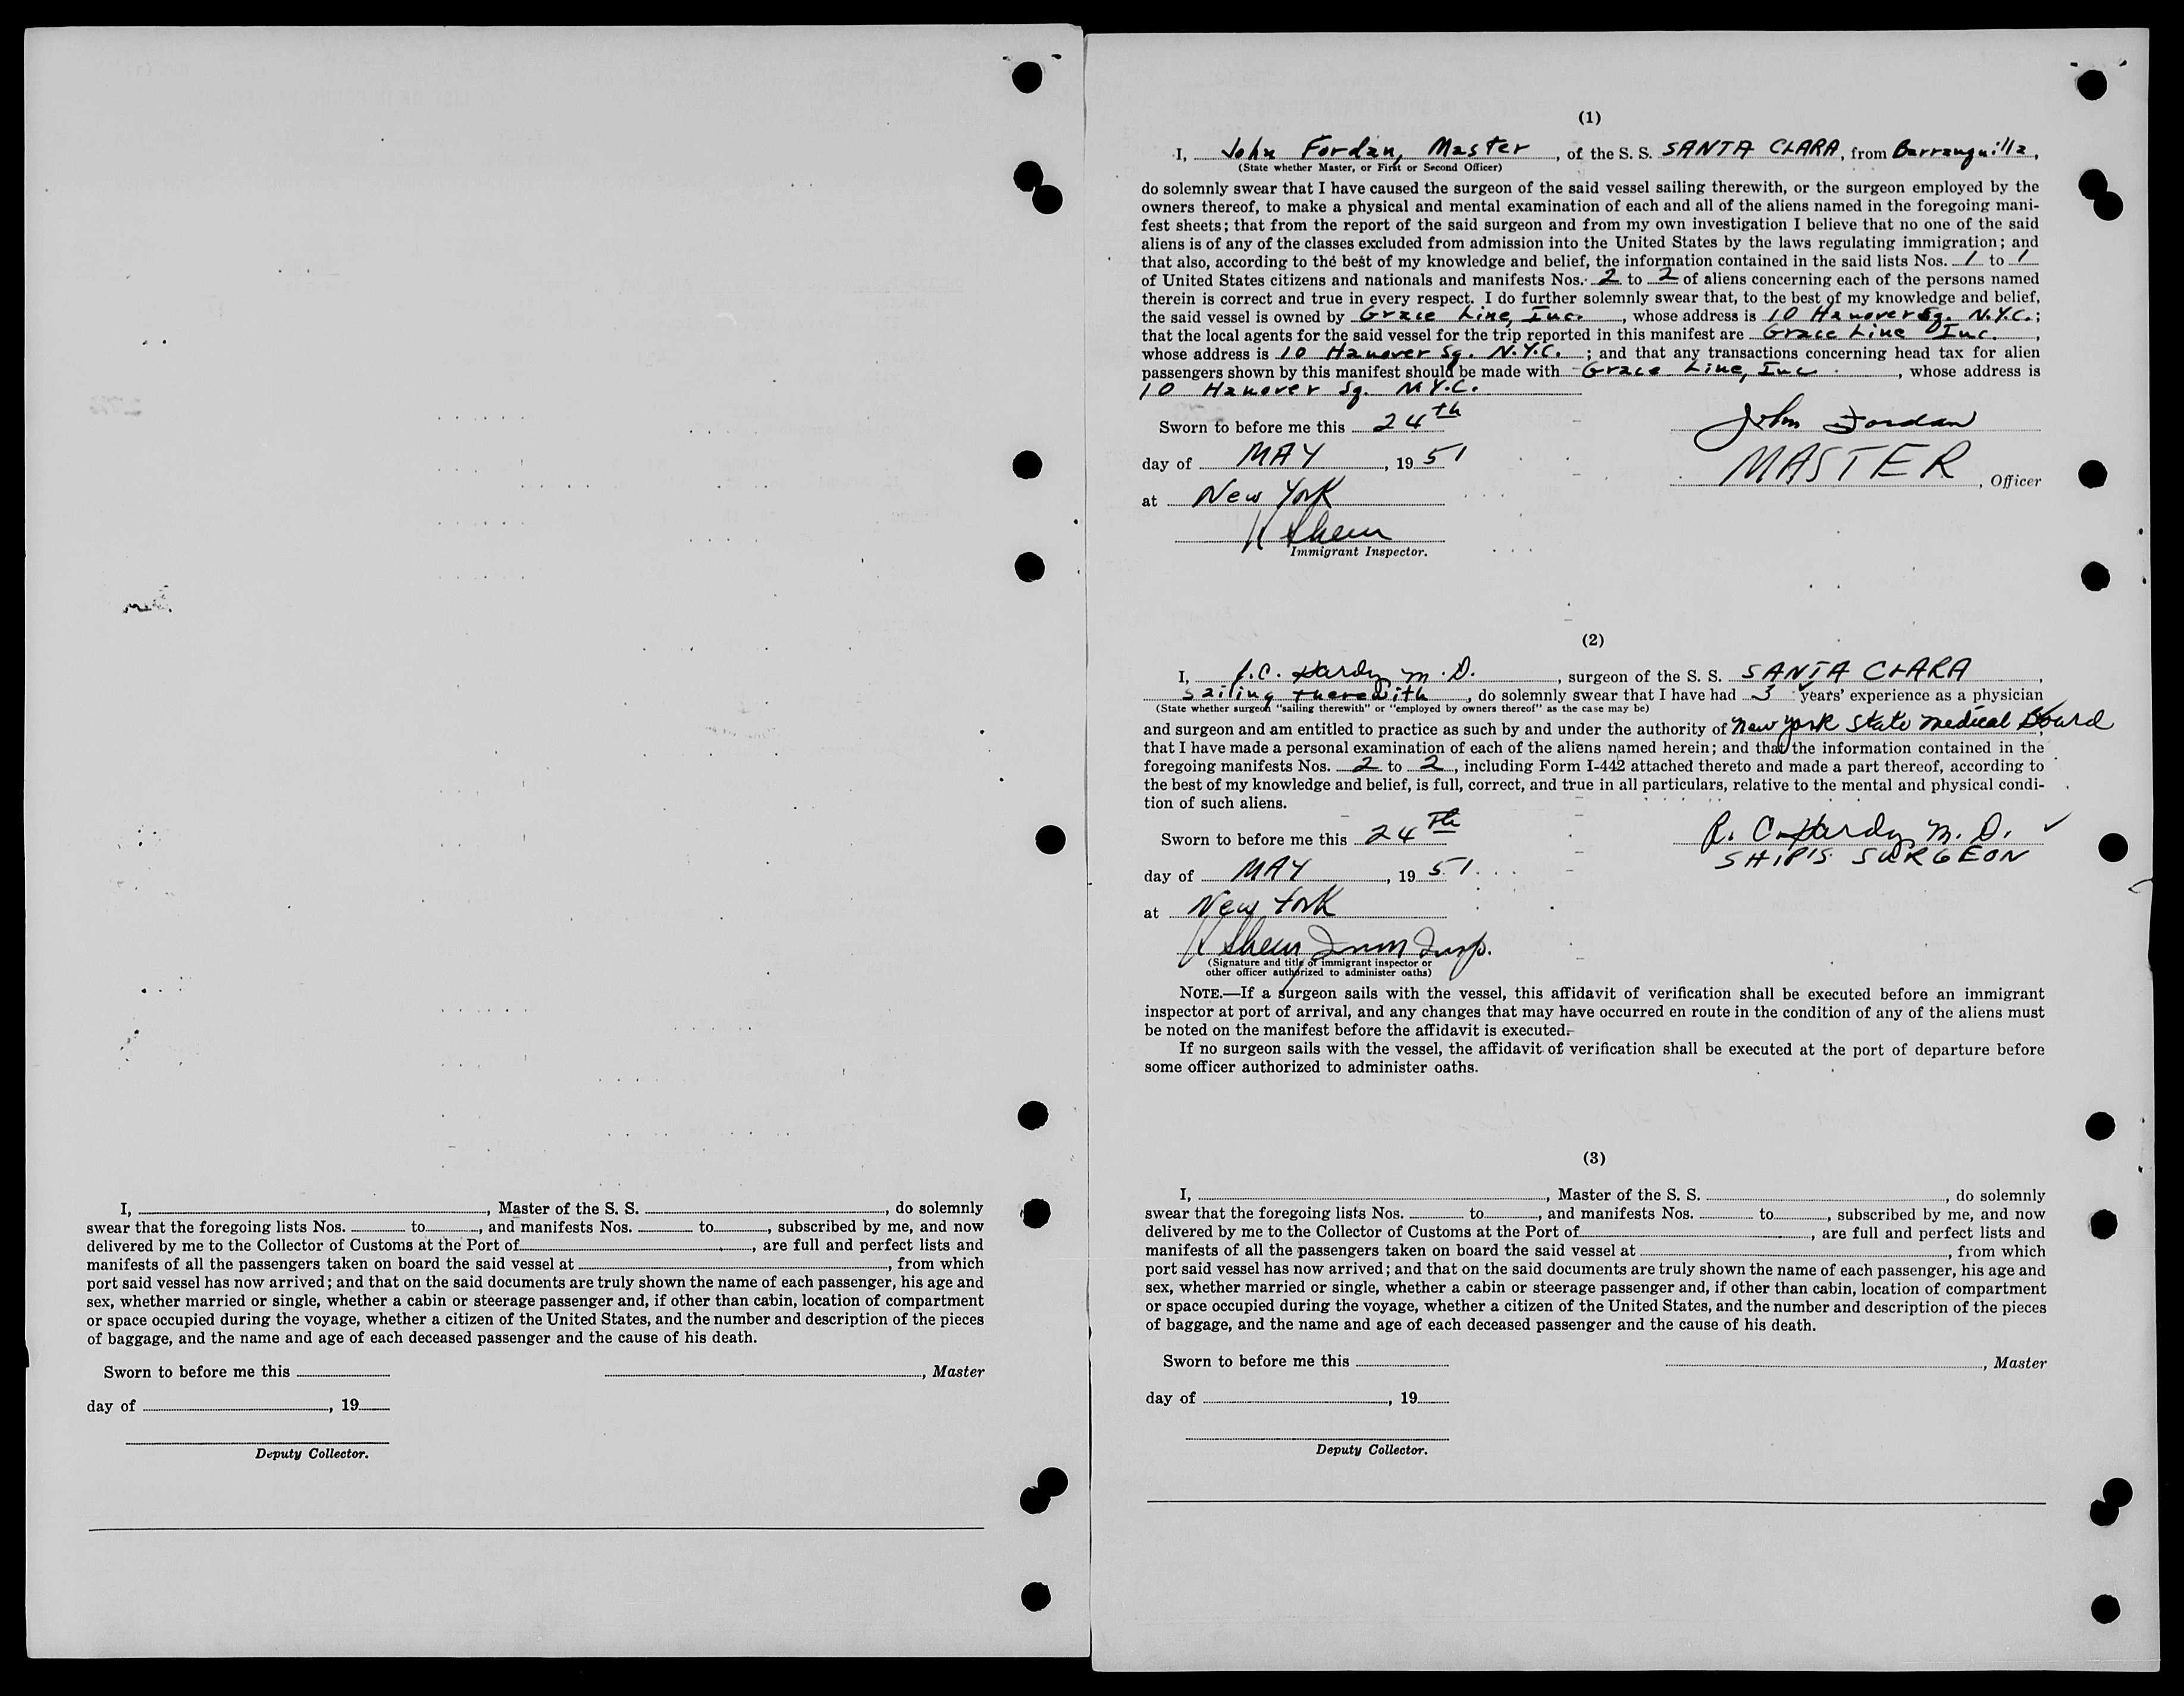 I, , Master of the S. S. , do solemnly
swear that the foregoing lists Nos. to , and manifests Nos. to , subscribed by me, and now
delivered by me to the Collector of Customs at the Port of , are full and perfect lists and
manifests of all the passengers taken on board the said vessel at , from which
port said vessel has now arrived; and that on the said documents are truly shown the name of each passenger, his age and
sex, whether married or single, whether a cabin or steerage passenger and, if other than cabin, location of compartment
or space occupied during the voyage, whether a citizen of the United States, and the number and description of the pieces
of baggage, and the name and age of each deceased passenger and the cause of his death.
Sworn to before me this
, Master
day of , 19
Deputy Collector.
(1)
I, John Fordan, Master , of the S. S. SANTA CLARA, from Barranquilla,
(State whether Master, or First or Second Officer)
do solemnly swear that I have caused the surgeon of the said vessel sailing therewith, or the surgeon employed by the
owners thereof, to make a physical and mental examination of each and all of the aliens named in the foregoing mani-
fest sheets; that from the report of the said surgeon and from my own investigation I believe that no one of the said
aliens is of any of the classes excluded from admission into the United States by the laws regulating immigration; and
that also, according to the best of my knowledge and belief, the information contained in the said lists Nos. 1 to 1
of United States citizens and nationals and manifests Nos. 2 to 2 of aliens concerning each of the persons named
therein is correct and true in every respect. I do further solemnly swear that, to the best of my knowledge and belief,
the said vessel is owned by Grace Line, Inc. , whose address is 10 Hanover Sq. N.Y.C.;
that the local agents for the said vessel for the trip reported in this manifest are Grace Line Inc. ,
whose address is 10 Hanover Sq. N.Y.C. ; and that any transactions concerning head tax for alien
passengers shown by this manifest should be made with Grace Line, Inc. , whose address is
10 Hanover Sq. N.Y.C.
Sworn to before me this 24th
John Fordan
day of MAY , 1951
MASTER , Officer
at New York
Immigrant Inspector.
(2)
I, R.C. Hardy M.D. , surgeon of the S. S. SANTA CLARA ,
sailing therewith , do solemnly swear that I have had 3 years' experience as a physician
(State whether surgeon "sailing therewith" or "employed by owners thereof" as the case may be)
and surgeon and am entitled to practice as such by and under the authority of New York State Medical Board ;
that I have made a personal examination of each of the aliens named herein; and that the information contained in the
foregoing manifests Nos. 2 to 2 , including Form I-442 attached thereto and made a part thereof, according to
the best of my knowledge and belief, is full, correct, and true in all particulars, relative to the mental and physical condi-
tion of such aliens.
Sworn to before me this 24th
R. C. Hardy M. D.
SHIP'S SURGEON
day of MAY , 1951
at New York
Imm Insp.
(Signature and title of immigrant inspector or
other officer authorized to administer oaths)
NOTE.—If a surgeon sails with the vessel, this affidavit of verification shall be executed before an immigrant
inspector at port of arrival, and any changes that may have occurred en route in the condition of any of the aliens must
be noted on the manifest before the affidavit is executed.
If no surgeon sails with the vessel, the affidavit of verification shall be executed at the port of departure before
some officer authorized to administer oaths.
(3)
I, , Master of the S. S. , do solemnly
swear that the foregoing lists Nos. to , and manifests Nos. to , subscribed by me, and now
delivered by me to the Collector of Customs at the Port of , are full and perfect lists and
manifests of all the passengers taken on board the said vessel at , from which
port said vessel has now arrived; and that on the said documents are truly shown the name of each passenger, his age and
sex, whether married or single, whether a cabin or steerage passenger and, if other than cabin, location of compartment
or space occupied during the voyage, whether a citizen of the United States, and the number and description of the pieces
of baggage, and the name and age of each deceased passenger and the cause of his death.
Sworn to before me this
, Master
day of , 19
Deputy Collector.